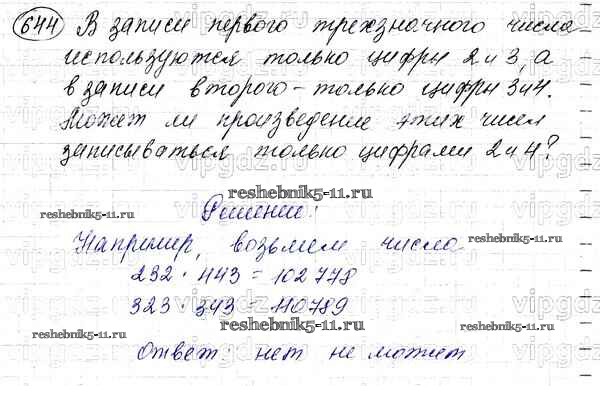 644 В записи первого трехзначного числа
используются только цифры 2 и 3, а
в записи второго - только цифры 3 и 4.
Может ли произведение этих чисел
записываться только цифрами 2 и 4?
reshebnik5-11.ru
Решение:
reshebnik5-11.ru
reshebnik5-11.ru
Например, возьмем числа
232 · 443 = 102778
323 · 343 = 110789
reshebnik5-11.ru
reshebnik5-11.ru
reshebnik5-11.ru
Ответ: нет не может